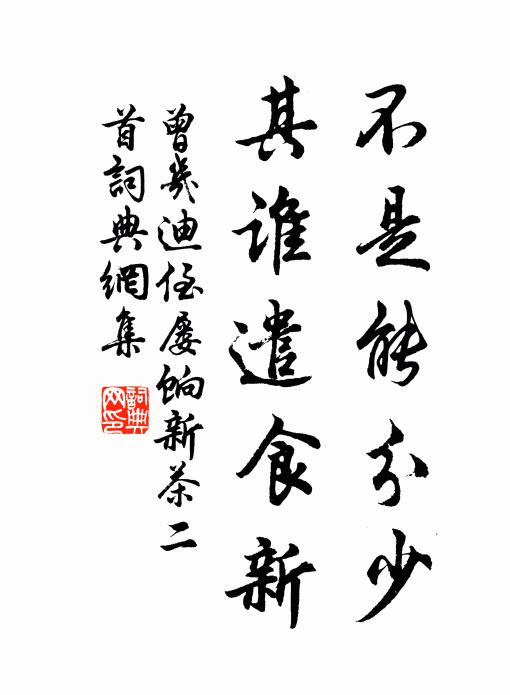 不是能分少
其誰遣食新
曾幾迪侄屡餉新茶二
首詞典網集
詞典
网印